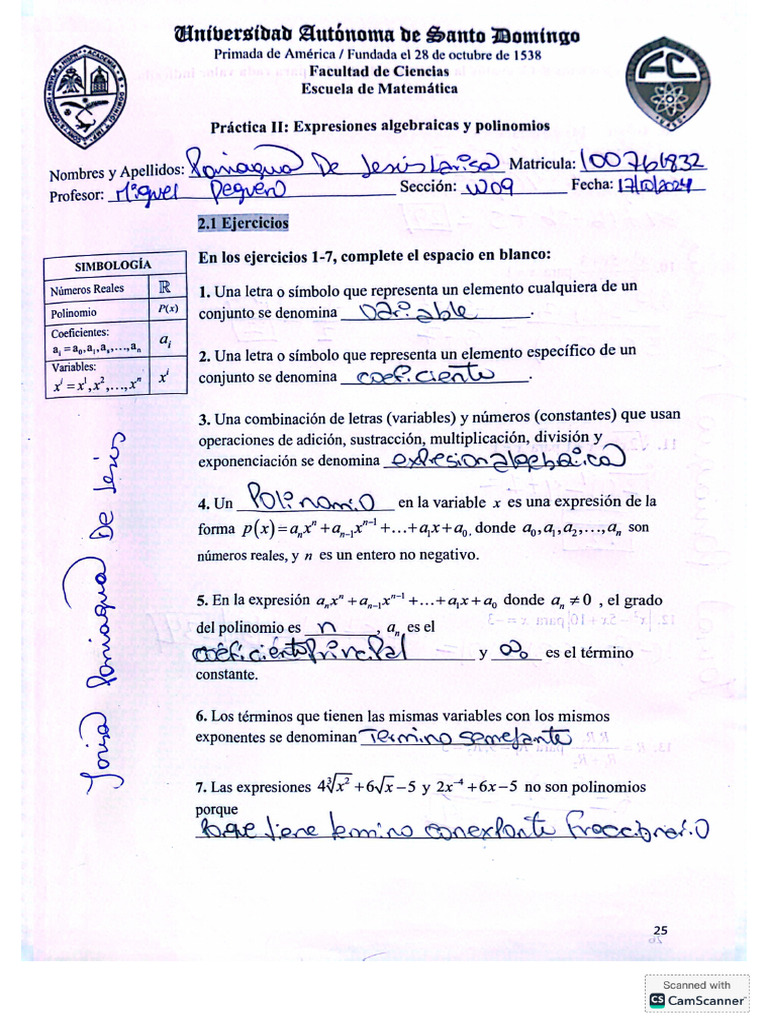 Universidad Autónoma de Santo Domingo
Primada de América / Fundada el 28 de octubre de 1538
Facultad de Ciencias
Escuela de Matemática
Práctica II: Expresiones algebraicas y polinomios
Nombres y Apellidos: Paniagua De Jesús Larisa Matricula: 100761832
Profesor: Miguel Peguero Sección: W09 Fecha: 17/10/2024
2.1 Ejercicios
SIMBOLOGÍA
Números Reales ℝ
Polinomio P(x)
Coeficientes:
aᵢ = a₀, a₁, aₛ, …, aₙ aᵢ
Variables:
xⁱ = x¹, x², …, xⁿ xⁱ
En los ejercicios 1-7, complete el espacio en blanco:
1. Una letra o símbolo que representa un elemento cualquiera de un
conjunto se denomina variable.
2. Una letra o símbolo que representa un elemento específico de un
conjunto se denomina coeficiente.
3. Una combinación de letras (variables) y números (constantes) que usan
operaciones de adición, sustracción, multiplicación, división y
exponenciación se denomina expresion algebraica
4. Un Polinomio en la variable x es una expresión de la
forma p(x) = aₙxⁿ + aₙ₋₁xⁿ⁻¹ + … + a₁x + a₀, donde a₀, a₁, a₂, …, aₙ son
números reales, y n es un entero no negativo.
5. En la expresión aₙxⁿ + aₙ₋₁xⁿ⁻¹ + … + a₁x + a₀ donde aₙ ≠ 0 , el grado
del polinomio es n , aₙ es el
coeficiente Principal y a₀ es el término
constante.
6. Los términos que tienen las mismas variables con los mismos
exponentes se denominan Termino semejante
7. Las expresiones 4∛x² + 6√x − 5 y 2x⁻⁴ + 6x − 5 no son polinomios
porque
tiene termino con fraccionario
Paniagua De Jesús
25
Scanned with
CS CamScanner